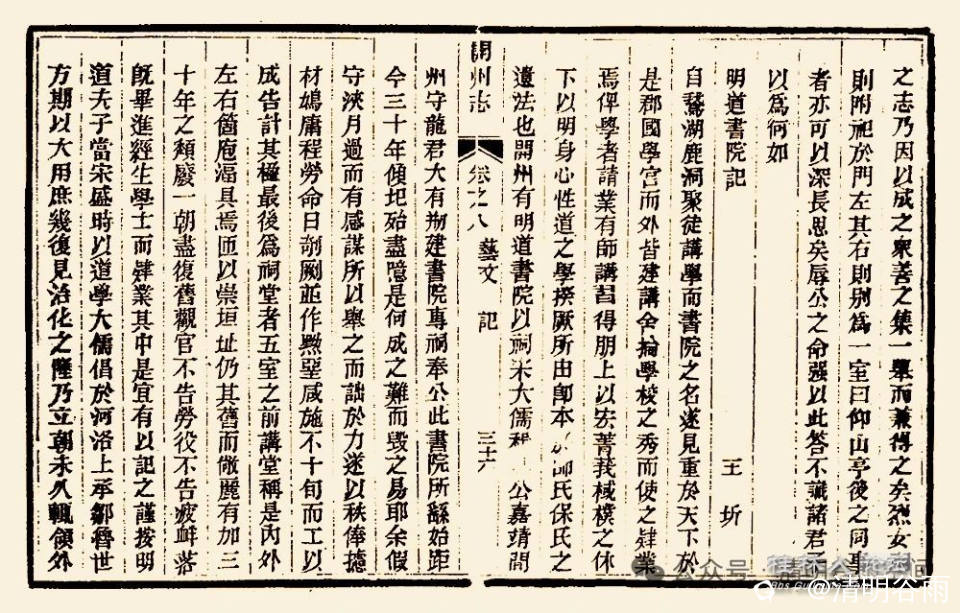 之志乃因以成之衆善之集一舉而兼得之矣烈女
則附祀於門左其右則别為一室曰仰山亭後之同
者亦可以深長思矣辱公之命强以此答不識諸君
以為何如
明道書院記
王圻
自鵞湖鹿洞聚徒講學而書院之名遂見重於天下於
是郡國學宫而外皆建講舍掄學校之秀而使之肄業
焉俾學者請業有師講習得朋上以宏菁莪棫樸之休
下以明身心性道之學揆厥所由卽本於師氏保氏之
遺法也開州有明道書院以祠宋大儒程公嘉靖間
開州志
卷之八 藝文 記
三十六
州守龍君大有剏建書院專祠奉公此書院所繇始距
今三十年傾圮殆盡噫是何成之難而毁之易耶余假
守浹月過而有感謀所以舉之而詘於力遂以秩俸摅
材鳩庸程勞命日剞劂並作黝堊咸施不十旬而工以
成告計其楹最後為祠堂者五室之前講堂稱是内外
左右箇庖湢具焉匝以崇垣址仍其舊而敞麗有加三
十年之頽廢一朝盡復舊觀官不告勞役不告疲衅落
旣畢進經生學士而肄業其中是宜有以記之謹按明
道夫子當宋盛時以道學大儒倡於河洛上承鄒魯世
方期以大用庶幾復見治化之隆乃立朝未久輒領外
公众号
@清明谷雨